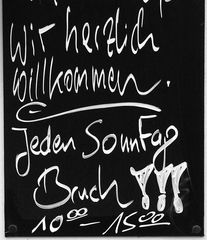 Wir herzlich
Willkommen.
Jeden Sonntag
Bruch !!!
10 00 - 15 00